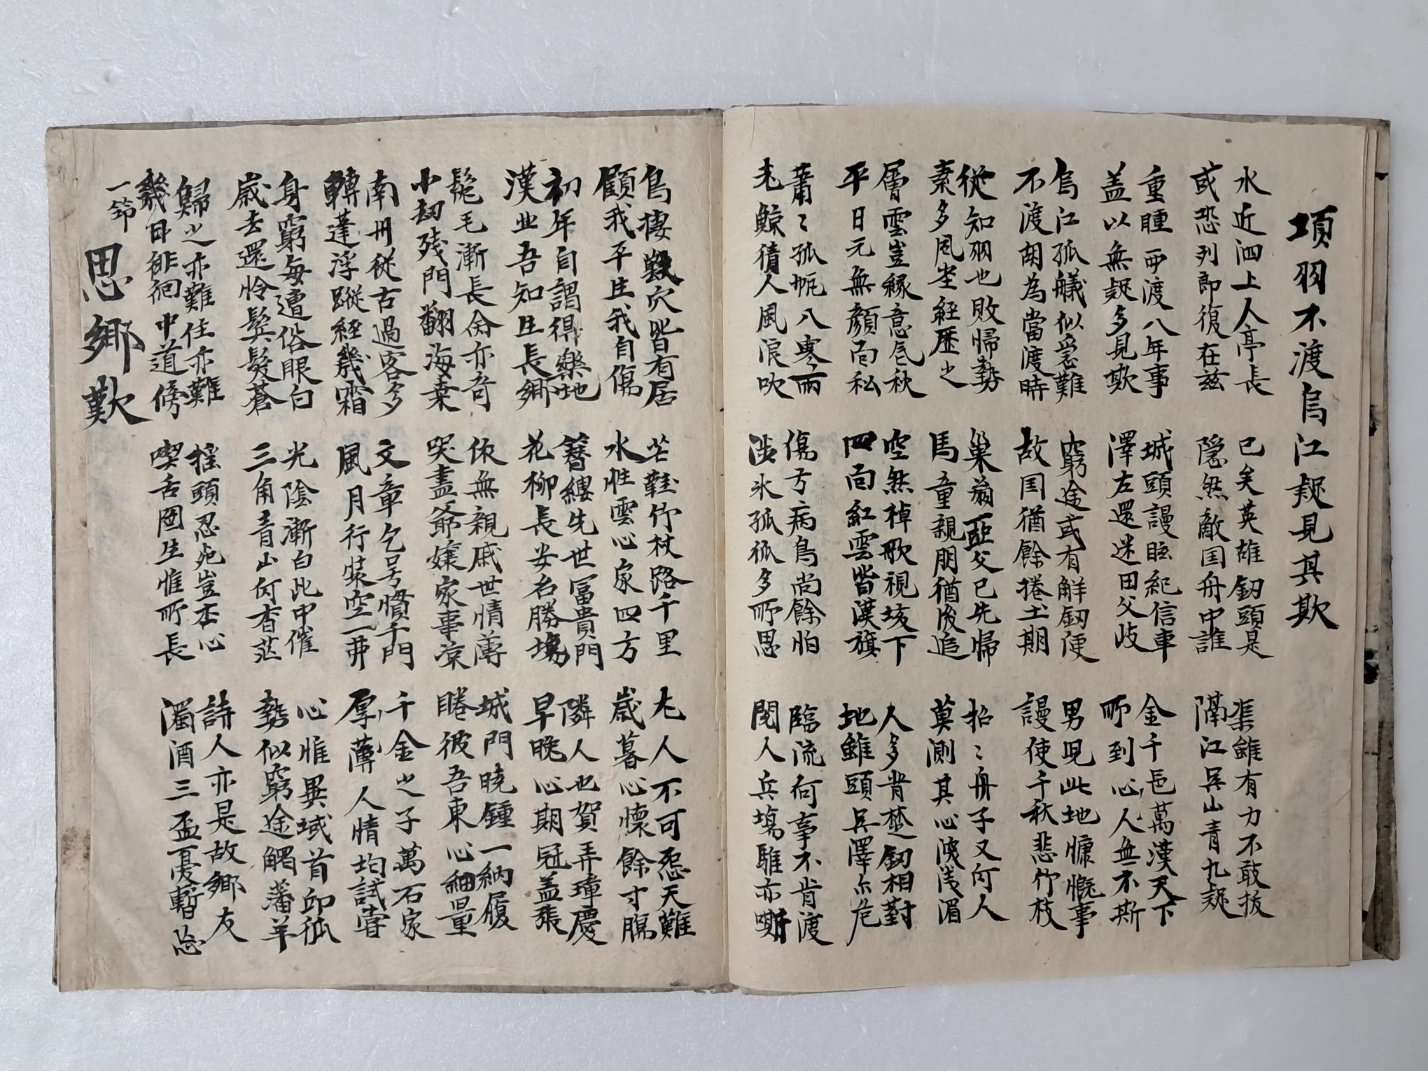 項羽不渡烏江疑見其欺
水近泗上人亭長
或恐列即復在茲
已矣英雄釰頭是
隱然敵国舟中誰
渠雖有力不敢拔
隔江吳山青九疑
重瞳再渡八年事
盖以無疑多見欺
城頭謾眩紀信車
澤左還迷田父岐
金千邑萬漢天下
所到心人無不斯
烏江孤艤似急難
不渡胡為當渡時
窮途或有解釰便
故国猶餘捲土期
男児此地慷慨事
謾使千秋悲竹枝
從知羽也敗歸勢
素多風坐經歷之
巢翁亞父已先歸
馬童親朋猶後追
招〻舟子又何人
莫測其心淺淺湄
層雲豈緣意氣秋
平日元無顏面私
空然棹歌視垓下
四面紅雲皆漢旗
人多背楚釰相對
地雖頭吳澤亦危
蕭〻孤帆入寒雨
老鯨猜人風浪吹
傷弓病鳥尚餘怕
涉氷孤狐多所思
臨流何事不肯渡
閱人兵塲騅亦嘶
鳥棲獸穴皆有居
顧我平生我自傷
芒鞋竹杖路千里
水性雲心家四方
尤人不可怨天難
歲暮心懷餘寸膓
初年自謂得樂地
漢北吾知生長鄉
簪纓先世冨貴門
花柳長安名勝塲
隣人也賀弄璋慶
早晚心期冠盖張
髦毛漸長命亦奇
小刼殘門翻海桑
依無親戚世情薄
哭盡爺孃家事凉
城門曉鍾一納履
睠彼吾東心細量
南州從古過客多
轉蓬浮蹤經幾霜
文章乞号慣千門
風月行裝空一甭
千金之子萬石家
厚薄人情均試甞
身窮每遭俗眼白
歲去還怜䯻髮蒼
光陰漸白此中催
三角青山何杳茫
心惟異域首邱狐
勢似窮途觸藩羊
歸之亦難住亦難
幾日徘徊中道傍
搖頭忍兆豈本心
喫舌圖生惟所長
詩人亦是故鄉友
濁酒三盃憂暫忘
一節
思鄉歎